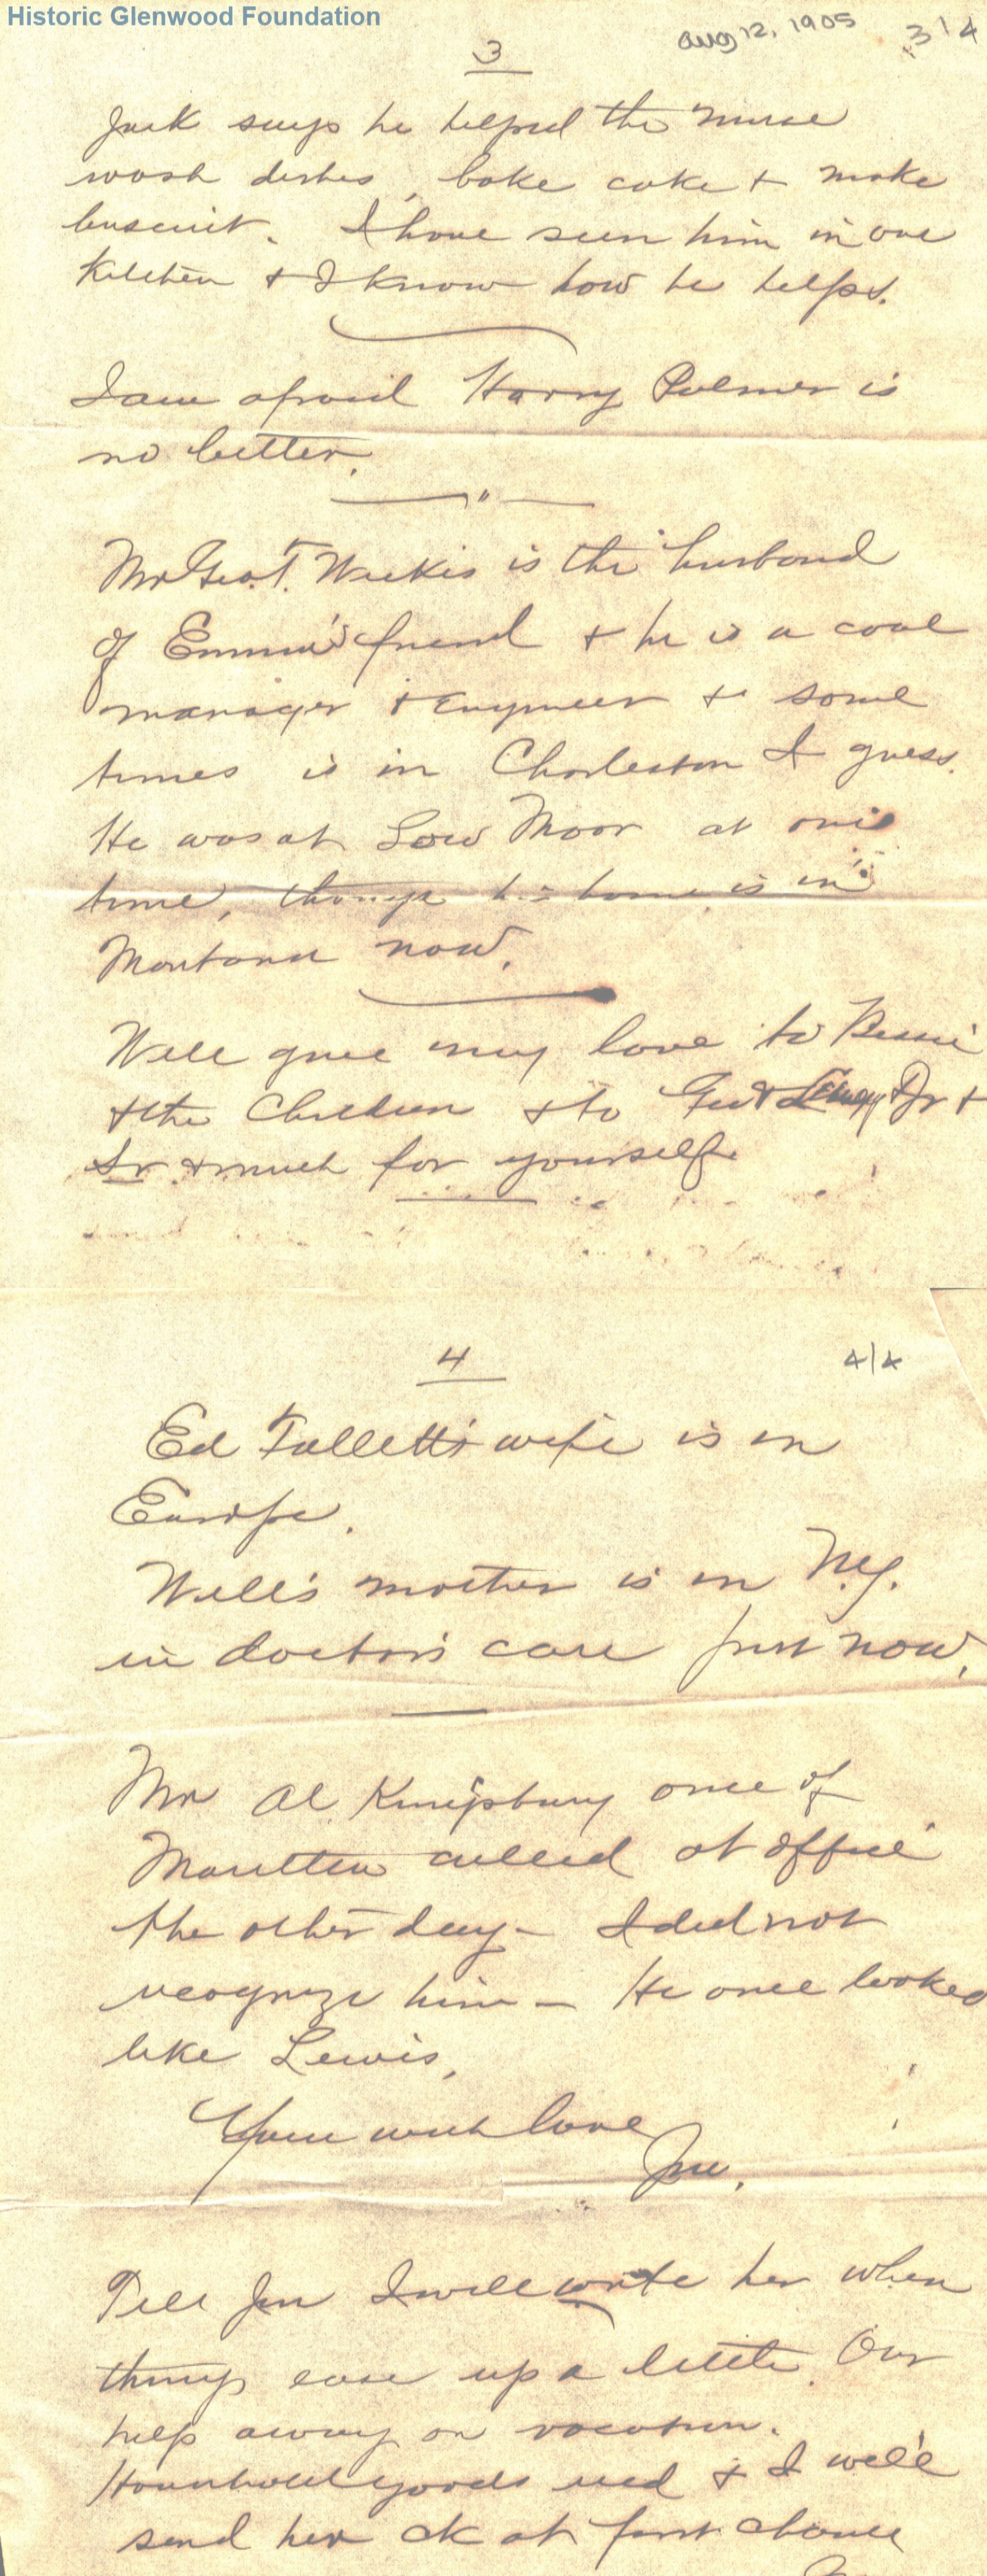 Historic Glenwood Foundation
Aug 12, 1905 3/4
3
Jack says he helped the nurse
wash dishes, bake cake & make
buscuit. I have seen him in our
Kitchen & I know how he helps.
I am afraid Harry Palmer is
no better.
Mr Geo. T. Wickes is the husband
of Emma's friend & he is a coal
manager & Engineer & some
times is in Charleston I guess.
He was at Low Moor at one
time, though his home is in
Montana now.
Will give my love to Bessie
& the Children & to Geo & Jr &
Sr & much for yourself.
4 4/4
Ed Follett's wife is in
Europe.
Will's mother is in N.Y.
in doctors care just now.
Mr Al Kingsbury once of
Marietta called at office
the other day - I did not
recognize him - He once looked
like Lewis,
Yours with love
Tell Jen I will write her when
things ease up a little. Our
help away on vacation.
Household goods recd & I will
send her ck at first chance